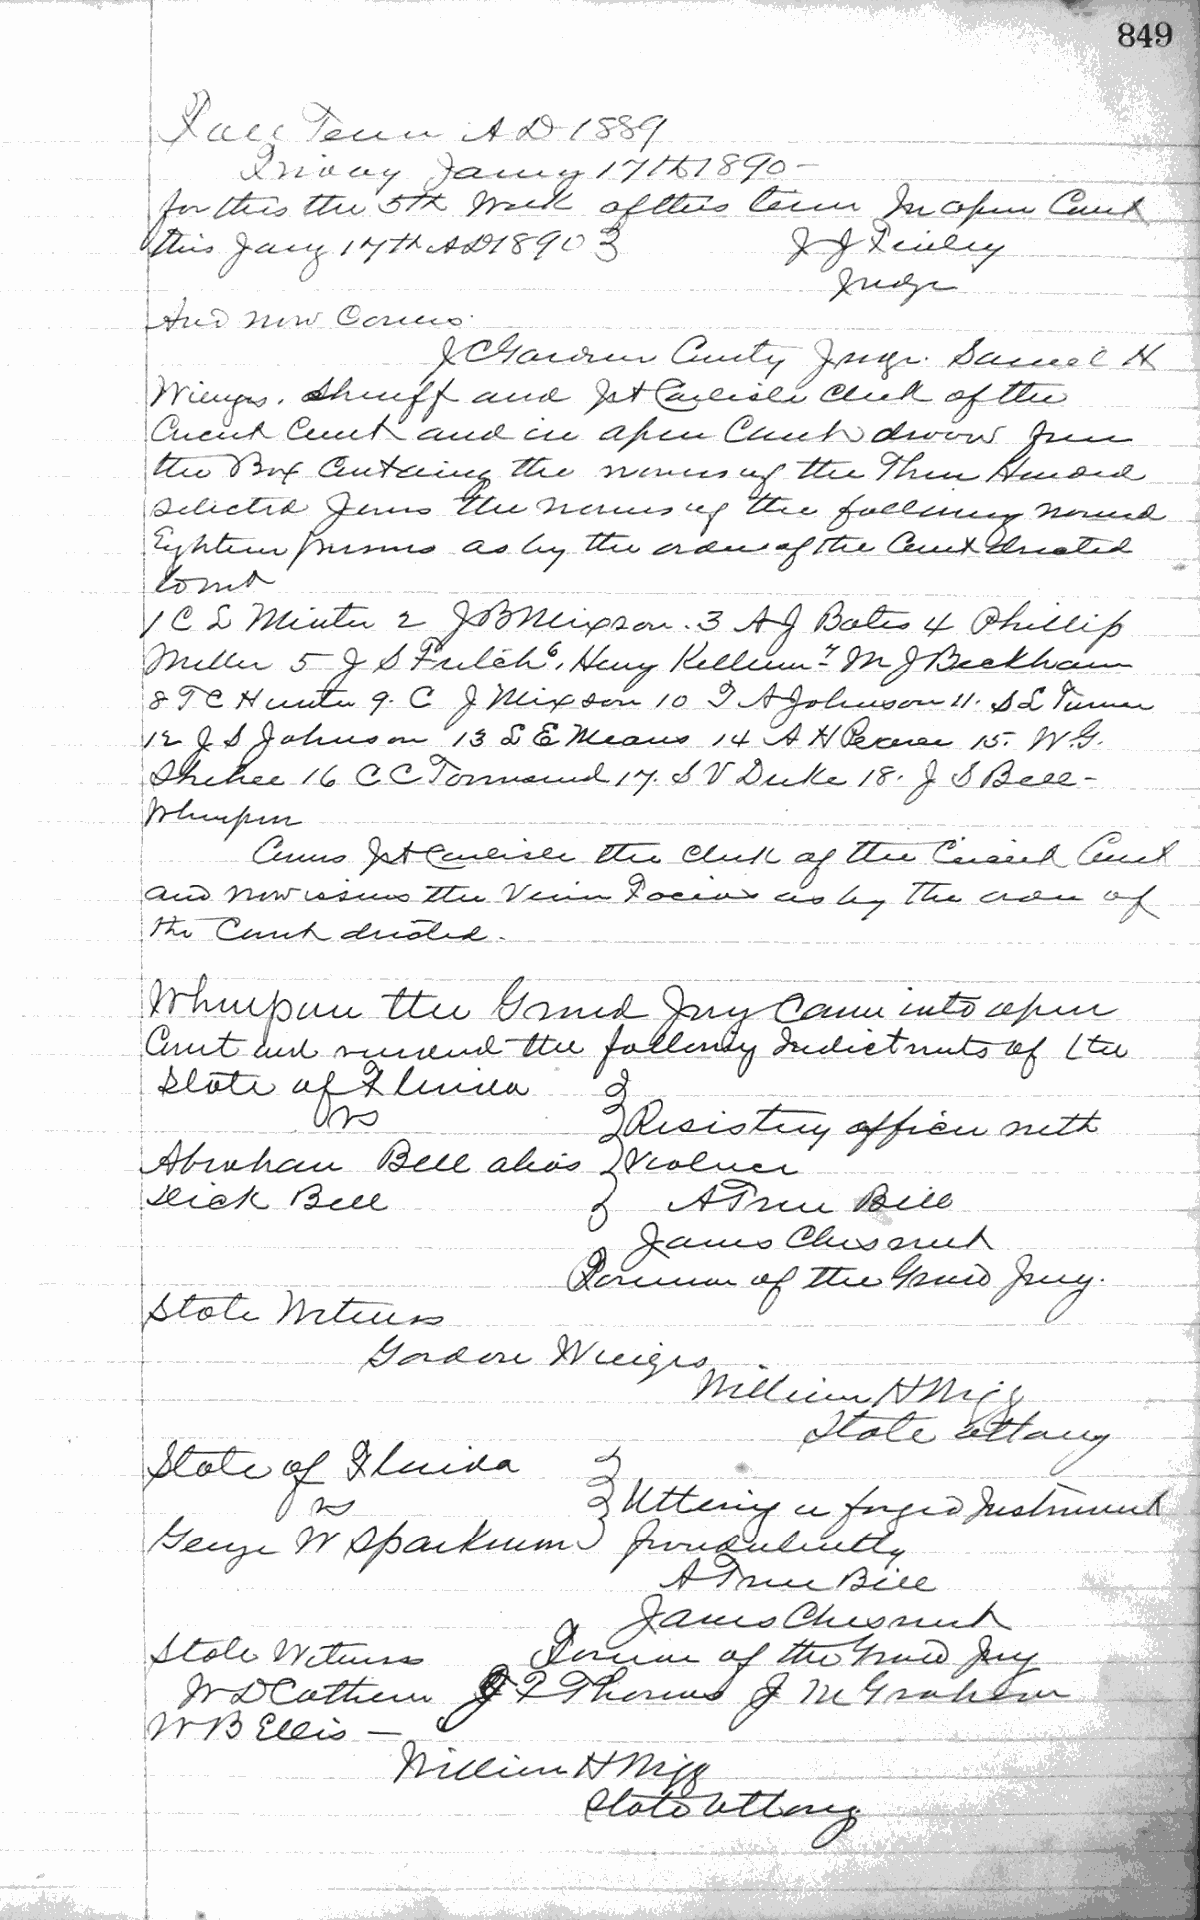 849
Fall Term A D 1889
Friday Jany 17th 1890 -
for this the 5th Week of this term In open Court
this Jany 17th AD 1890 J J Finley
Judge
And now Comes
J C Gardner County Judge. Samuel H
Wienges. Sheriff and J A Carlisle Clerk of the
Circuit Court and in open Court drawn from
the Box Containing the names of the Three Hundred
selected Jurors the names of the following named
Eighteen persons as by the order of the Court directed
to wit
1 C L Minter 2 J B Mixson. 3 A J Bates 4 Phillip
Miller 5 J S Futch 6. Henry Kellum 7 M J Beckham
8 T C Hunter 9. C J Mixson 10 T A Johnson 11. S L Turner
12 J S Johnson 13 L E Means 14 A H 15. W. G.
Shehee 16 C C Townsend 17. S V Duke 18. J S Bell -
Whereupon
Comes J A Carlisle the Clerk of the Circuit Court
and now issues the Venire Facias as by the order of
the Court directed -
Whereupon the Grand Jury Came into open
Court and rendered the following Indictments of the
State of Florida
vs Resisting officer with
Abraham Bell alias Violence
Dick Bell A True Bill
James Chesnut
Foreman of the Grand Jury.
State Witness
Gordon Wienges
William H Wigg
State Attorney
State of Florida
vs Uttering a forged Instrument
George W Sparkman fraudulently
A True Bill
James Chesnut
State Witness Foreman of the Grand Jury
W D Cathern J F Thomas J M Graham
W B Ellis —
William H Wigg
State Attorney